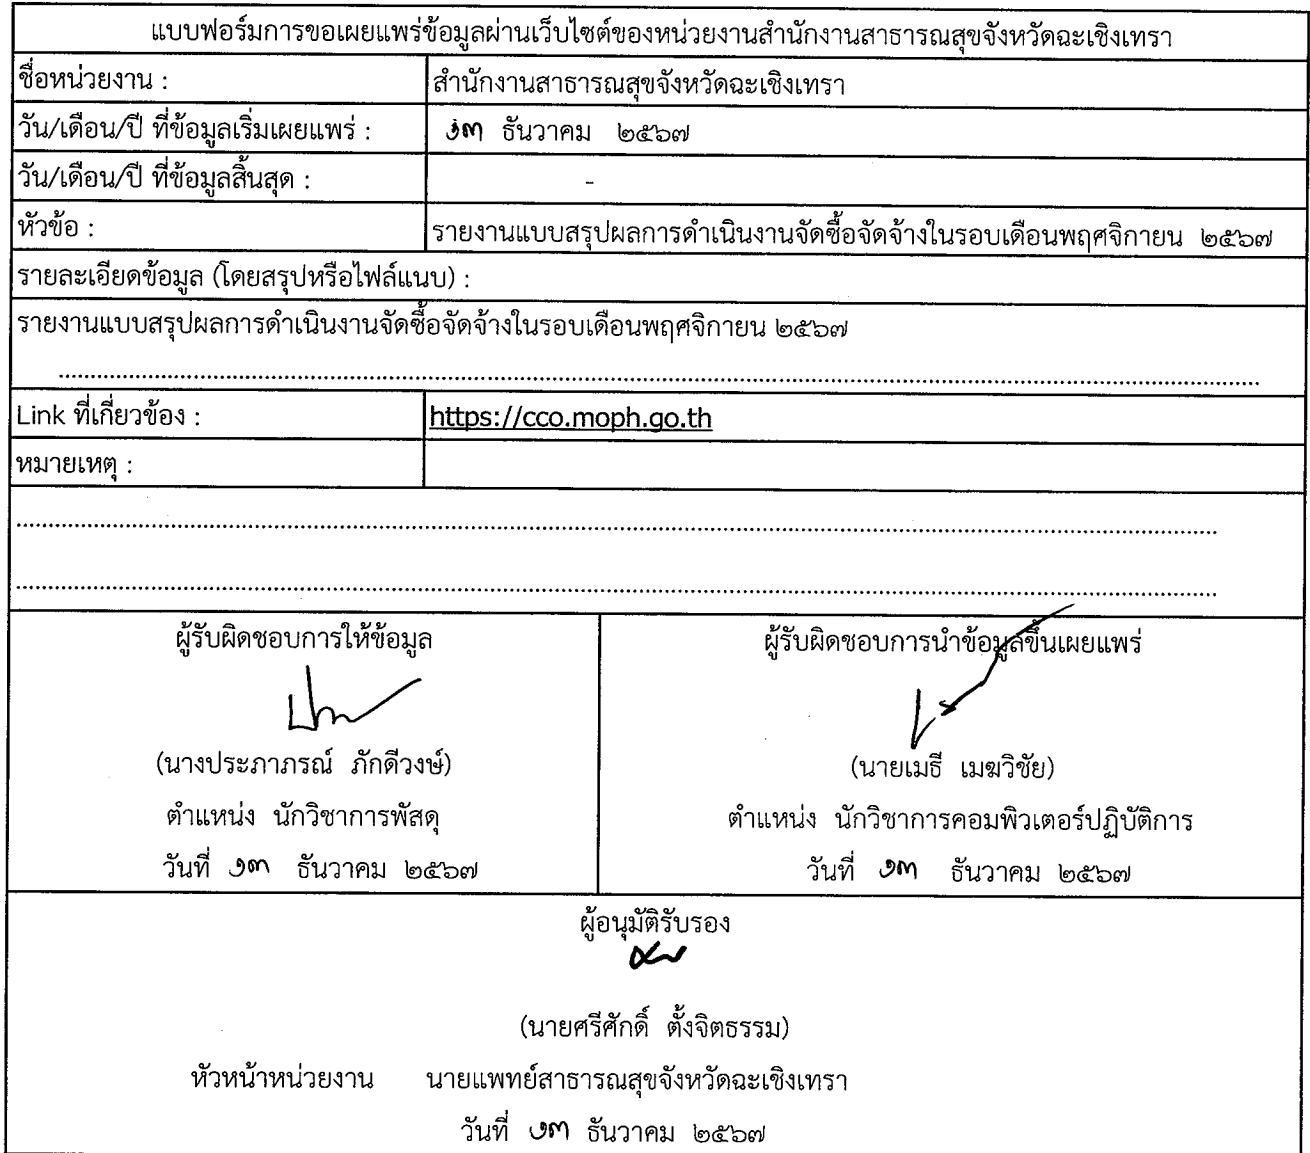 แบบฟอร์มการขอเผยแพร่ข้อมูลผ่านเว็บไซต์ของหน่วยงานสำนักงานสาธารณสุขจังหวัดฉะเชิงเทรา
ชื่อหน่วยงาน : สำนักงานสาธารณสุขจังหวัดฉะเชิงเทรา
วัน/เดือน/ปี ที่ข้อมูลเริ่มเผยแพร่ : ๑๓ ธันวาคม ๒๕๖๗
วัน/เดือน/ปี ที่ข้อมูลสิ้นสุด : -
หัวข้อ : รายงานแบบสรุปผลการดำเนินงานจัดซื้อจัดจ้างในรอบเดือนพฤศจิกายน ๒๕๖๗
รายละเอียดข้อมูล (โดยสรุปหรือไฟล์แนบ) :
รายงานแบบสรุปผลการดำเนินงานจัดซื้อจัดจ้างในรอบเดือนพฤศจิกายน ๒๕๖๗
Link ที่เกี่ยวข้อง : https://cco.moph.go.th
หมายเหตุ :
ผู้รับผิดชอบการให้ข้อมูล
(นางประภาภรณ์ ภักดีวงษ์)
ตำแหน่ง นักวิชาการพัสดุ
วันที่ ๑๓ ธันวาคม ๒๕๖๗
ผู้รับผิดชอบการนำข้อมูลขึ้นเผยแพร่
(นายเมธี เมฆวิชัย)
ตำแหน่ง นักวิชาการคอมพิวเตอร์ปฏิบัติการ
วันที่ ๑๓ ธันวาคม ๒๕๖๗
ผู้อนุมัติรับรอง
(นายศรีศักดิ์ ตั้งจิตธรรม)
หัวหน้าหน่วยงาน นายแพทย์สาธารณสุขจังหวัดฉะเชิงเทรา
วันที่ ๑๓ ธันวาคม ๒๕๖๗